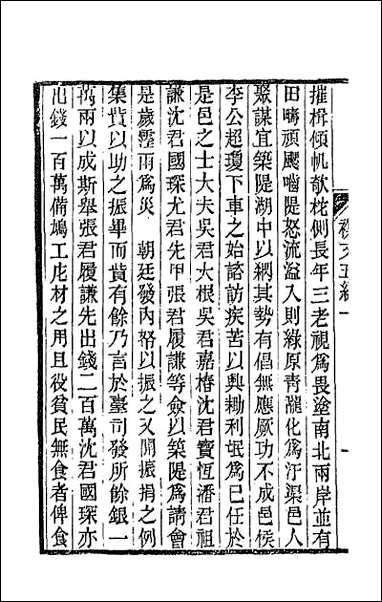 摧楫傾帆欹柁側長年三老視為畏塗南北兩岸並有
田疇頑颷嚙隄怒流溢入則綠原青隴化為汙渠邑人
聚謀宜築隄湖中以綱其勢有倡無應厥功不成邑侯
李公超瓊下車之始諮訪疾苦以興耡利氓為己任於
是邑之士大夫吳君大根吳君嘉椿沈君寶恆潘君祖
謙沈君國琛尤君先甲張君履謙等僉以築隄為請會
是歲霪雨為災 朝廷發內帑以振之又開振捐之例
集貲以助之振畢而貲有餘乃言於臺司發所餘銀一
萬兩以成斯舉張君履謙先出錢二百萬沈君國琛亦
出錢一百萬備鳩工庀材之用且役貧民無食者俾食
春在堂襍文五編一